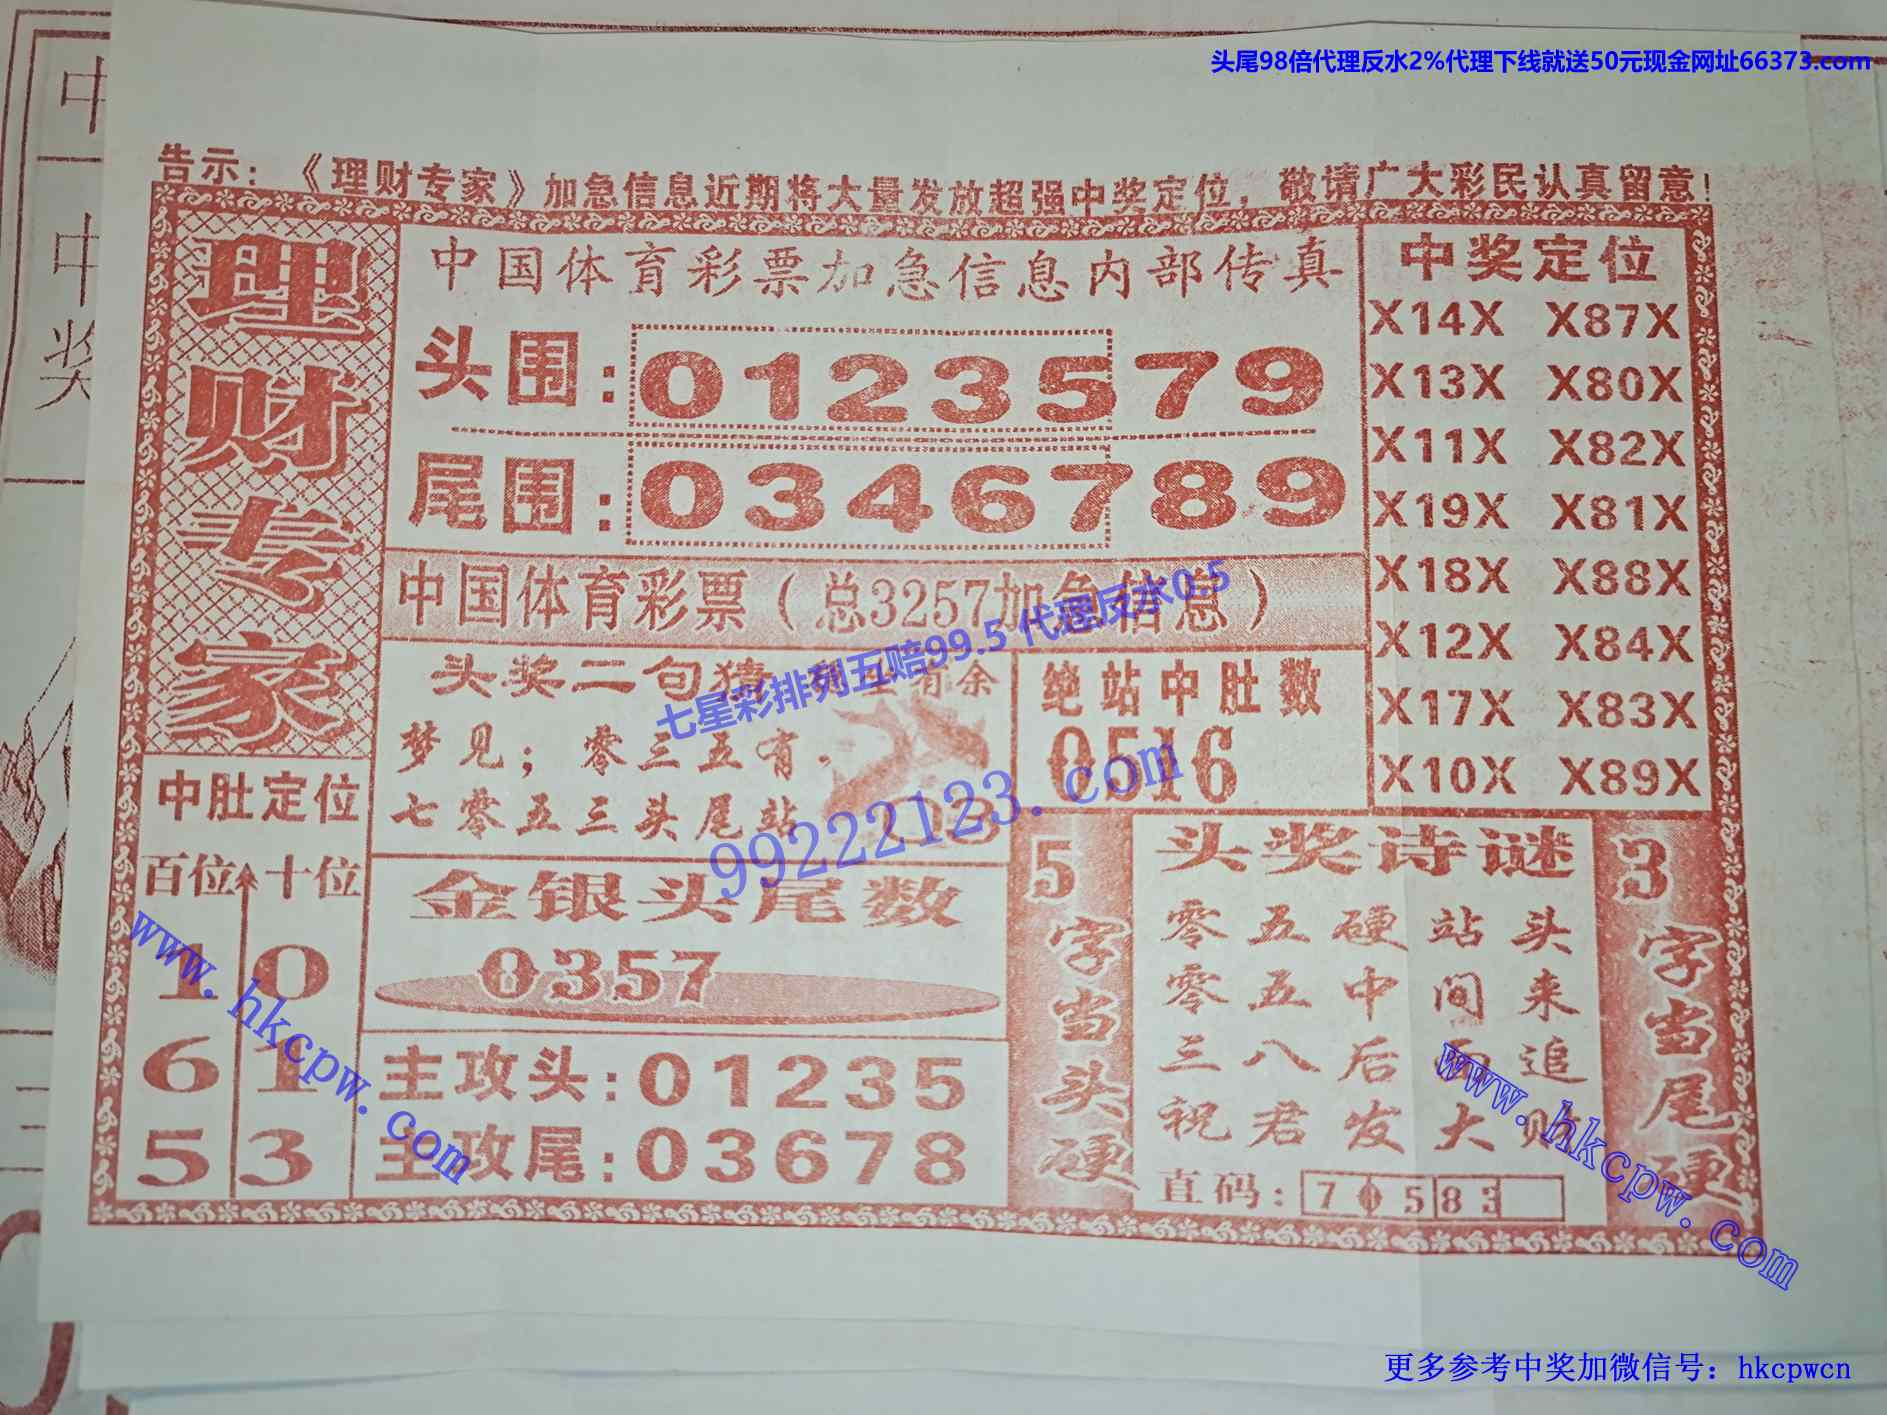 头尾98倍代理反水2%代理下线就送50元现金网址66373.com
告示：《理财专家》加急信息近期将大量发放超强中奖定位，敬请广大彩民认真留意！
理财专家
中国体育彩票加急信息内部传真
头围：0123579
尾围：0346789
中国体育彩票（总3257加急信息）
中奖定位
X14X X87X
X13X X80X
X11X X82X
X19X X81X
X18X X88X
X12X X84X
X17X X83X
X10X X89X
头奖二句猜
有余
梦见；零三五有．
七零五三头尾站
绝站中肚数
0516
七星彩排列五赔99.5 代理反水0.5
99222123.com
中肚定位
百位 十位
1 0
6 1
5 3
金银头尾数
0357
主攻头：01235
主攻尾：03678
5字当头硬
头奖诗谜
零五硬站头
零五中间来
三八后面追
祝君发大财
直码：70583
3字当尾硬
www.hkcpw.com
www.hkcpw.com
更多参考中奖加微信号：hkcpwcn
中
中
奖